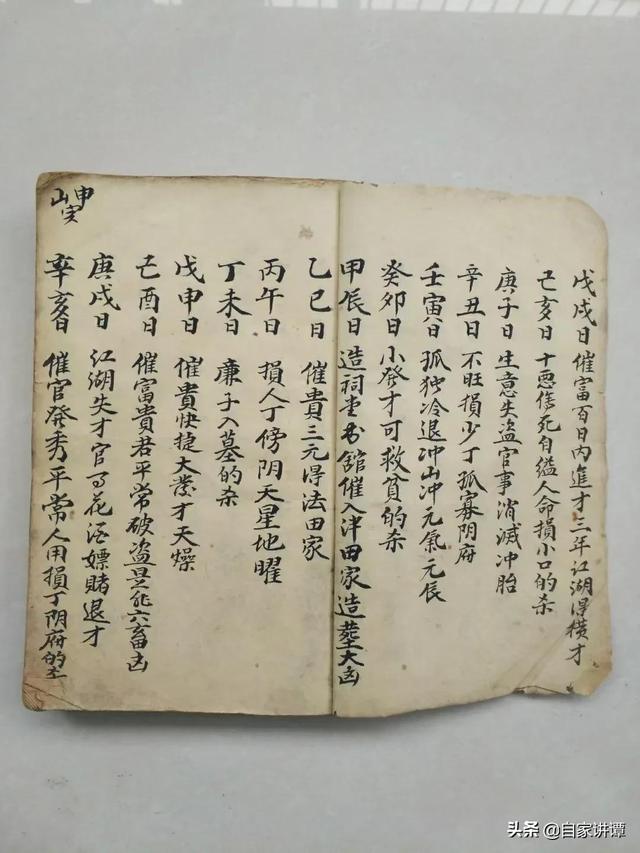 戊戌日 催富百日内進才三年江湖得横才
己亥日 十恶傷死自縊人命損小口的杀
庚子日 生意失盗官事消滅冲胎
辛丑日 不旺損少丁孤寡阴府
壬寅日 孤独冷退冲山冲元氣元辰
癸卯日 小發才可救貧的杀
甲辰日 造祠堂书舘催入泮田家造塟大凶
乙巳日 催貴三元得法田家
丙午日 損人丁傍阴天星地曜
丁未日 廉子入墓的杀
戊申日 催貴快捷大發才天燥
己酉日 催富貴君平常破盗 六畜凶
庚戌日 江湖失才官 花酒嫖賭退才
辛亥日 催官發秀平常人用損丁阴府的
申山
头条 @自家讲谭